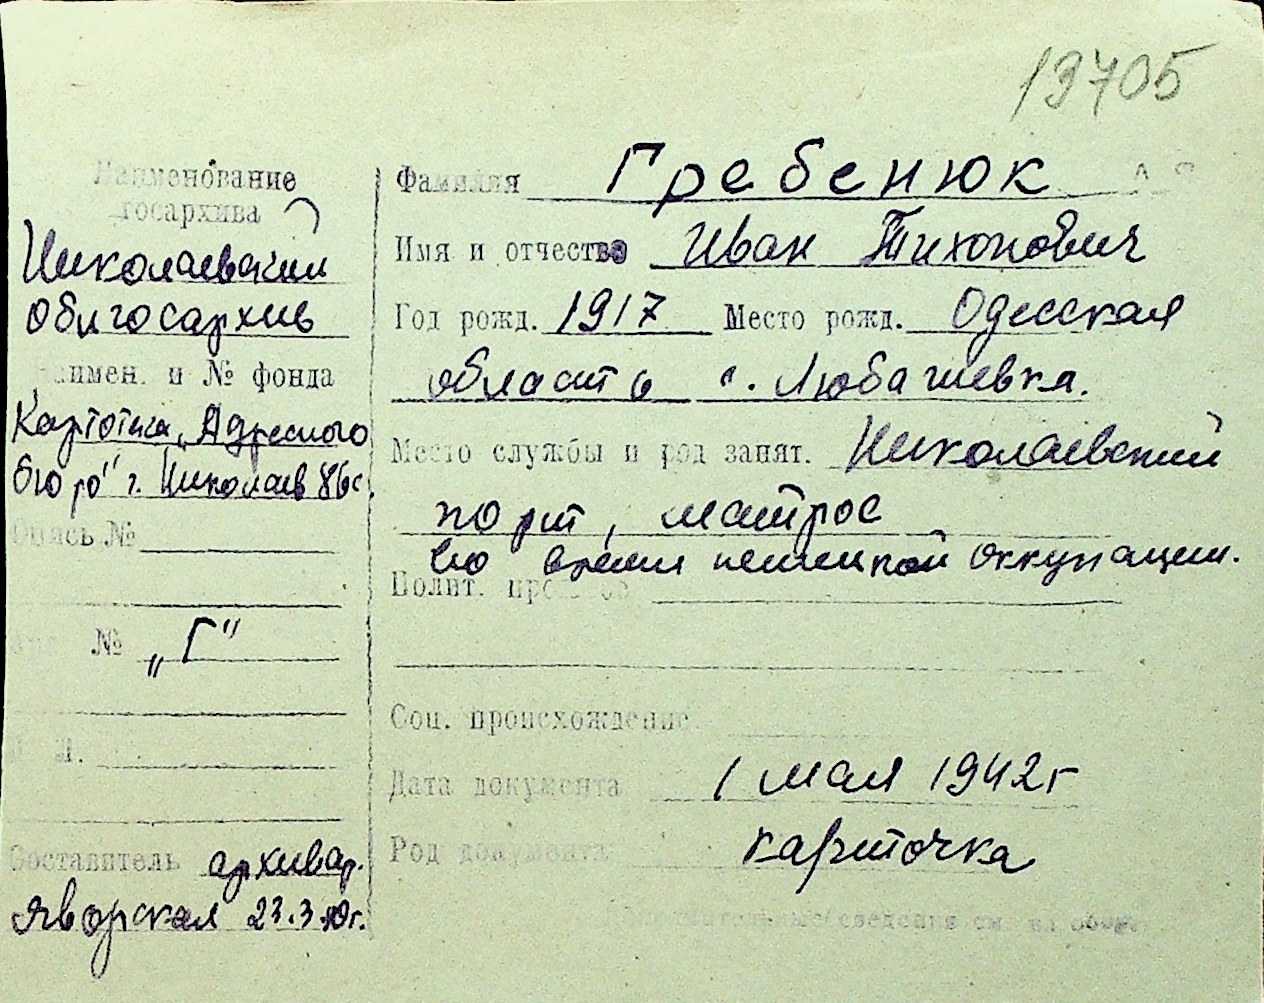 13705
Наименование
госархива
Николаевский
облгосархив
Наимен. и № фонда
Картотека „Адресного
бюро" г. Николаев 86с.
Опись №
№ „Г"
Л.
Составитель архивар.
Яворская 23.3.
Фамилия Гребенюк
Имя и отчество Иван Тихонович
Год рожд. 1917 Место рожд. Одесская
область с. Любашевка.
Место службы и род занят. Николаевский
порт, матрос
во время немецкой оккупации.
Полит.
Соц. происхождение
Дата документа 1 мая 1942г
Род документа карточка
Дополнительные сведения см. на обор.